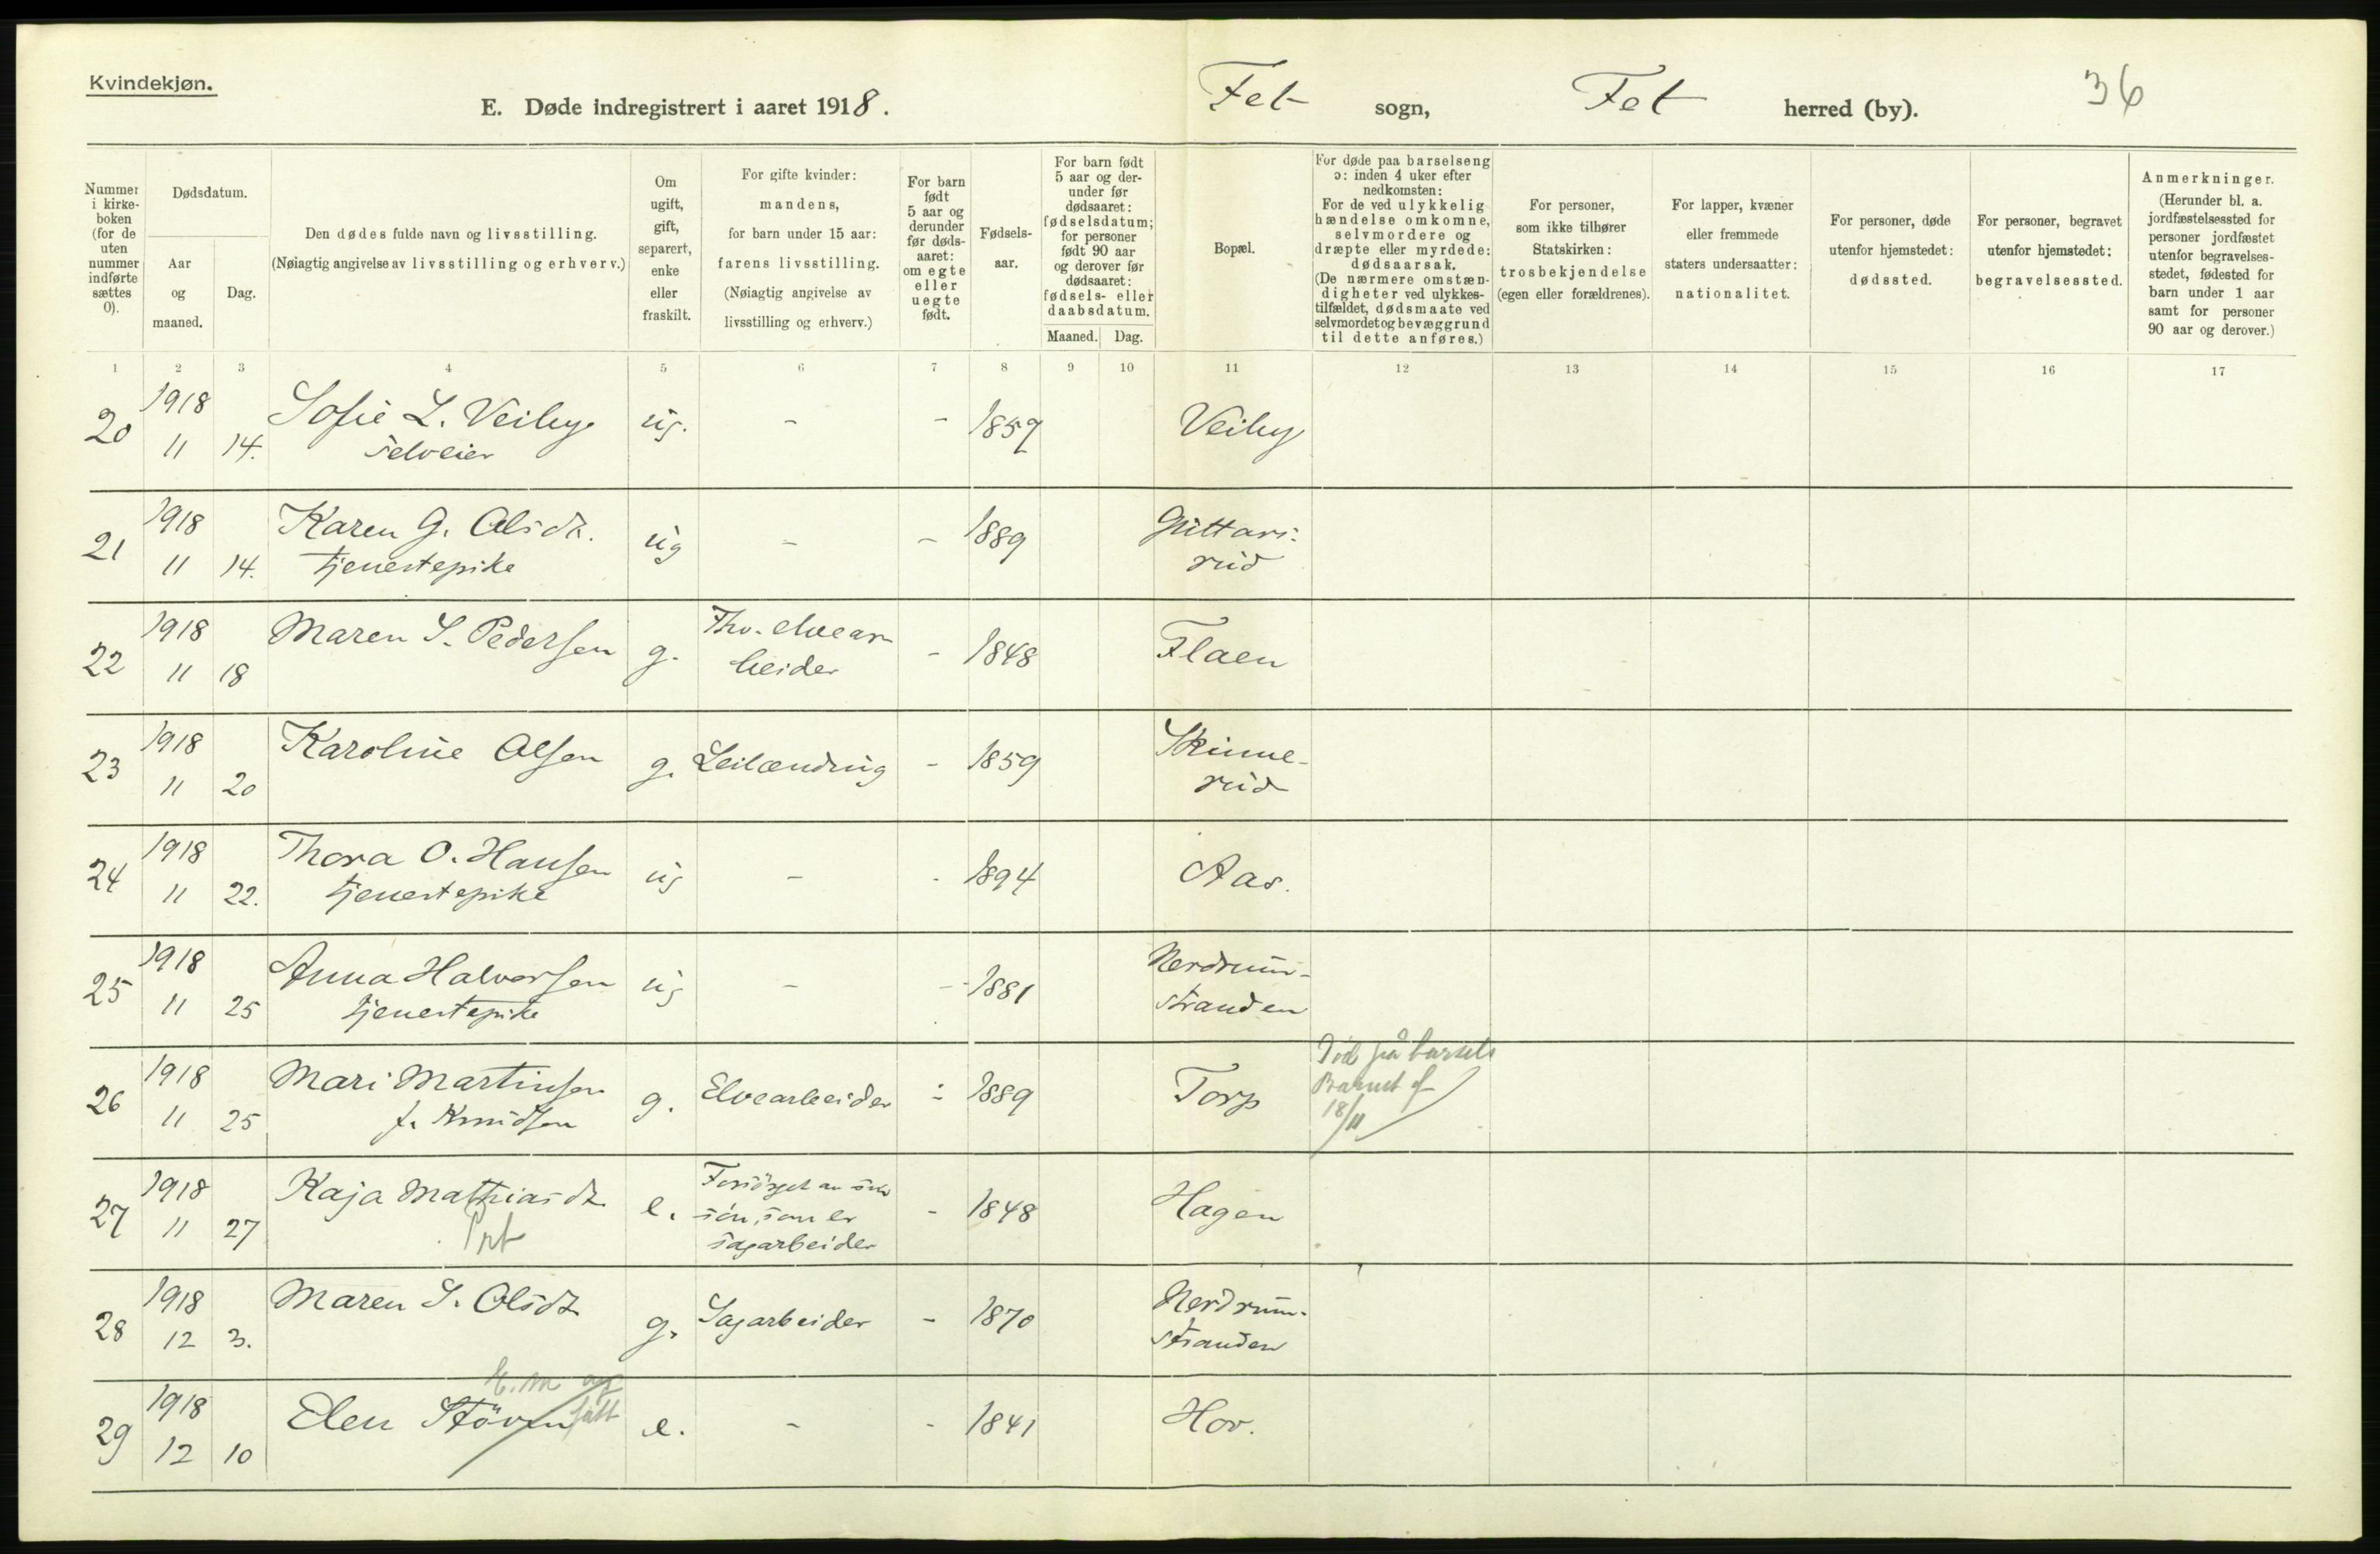 Kvindekjøn.
E. Døde indregistrert i aaret 1918.
Fet sogn, Fet herred (by).
36
Nummer i kirkeboken (for de uten nummer indførte sættes 0).
Dødsdatum.
Aar og maaned.
Dag.
Den dødes fulde navn og livsstilling.
(Nøiagtig angivelse av livsstilling og erhverv.)
Om ugift, gift, separert, enke eller fraskilt.
For gifte kvinder: mandens, for barn under 15 aar: farens livsstilling.
(Nøiagtig angivelse av livsstilling og erhverv.)
For barn født 5 aar og derunder før dødsaaret: om egte eller uegte født.
Fødselsaar.
For barn født 5 aar og derunder før dødsaaret: fødselsdatum; for personer født 90 aar og derover før dødsaaret: fødsels- eller daabsdatum.
Maaned. Dag.
Bopæl.
For døde paa barselseng ɔ: inden 4 uker efter nedkomsten: For de ved ulykkelig hændelse omkomne, selvmordere og dræpte eller myrdede: dødsaarsak. (De nærmere omstændigheter ved ulykkestilfældet, dødsmaate ved selvmordet og bevæggrund til dette anføres.)
For personer, som ikke tilhører Statskirken: trosbekjendelse (egen eller forældrenes).
For lapper, kvæner eller fremmede staters undersaatter: nationalitet.
For personer, døde utenfor hjemstedet: dødssted.
For personer, begravet utenfor hjemstedet: begravelsessted.
Anmerkninger.
(Herunder bl. a. jordfæstelsessted for personer jordfæstet utenfor begravelsesstedet, fødested for barn under 1 aar samt for personer 90 aar og derover.)
1 2 3 4 5 6 7 8 9 10 11 12 13 14 15 16 17
20 1918 11 14. Sofie L. Veiby selveier ug. - - 1859 Veiby
21 1918 11 14. Karen G. Olsdt. tjenestepike ug - - 1889 Guttarsrud
22 1918 11 18 Maren S. Pedersen g. Fhv. elvearbeider - 1848 Flaen
23 1918 11 20 Karoline Olsen g. Leilænding - 1859 Skinnerud
24 1918 11 22. Thora O. Hansen tjenestepike ug - - 1894 Aas.
25 1918 11 25 Anna Halvorsen tjenestepike ug - - 1881 Nerdrumstranden
26 1918 11 25 Mari Martinsen f. Knudsen g. Elvearbeider - 1889 Torp Död på barsels Barnet f 18/11
27 1918 11 27 Kaja Mathiasdt. e. Forsörget av sin sön, som er sagarbeider - 1848 Hagen
28 1918 12 3. Maren S. Olsdt g. Sagarbeider - 1870 Nerdrumstranden
29 1918 12 10 Elen Stöven e. - - 1841 Hov.